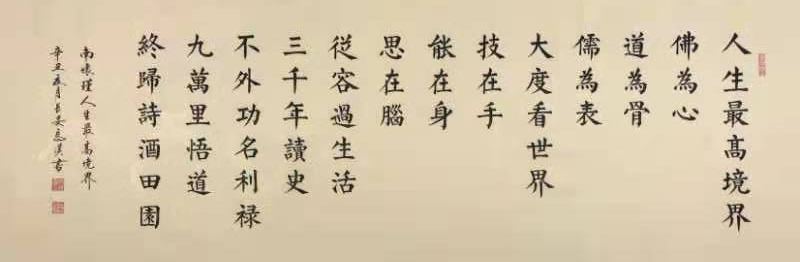 人生最高境界
佛為心
道為骨
儒為表
大度看世界
技在手
能在身
思在腦
從容過生活
三千年讀史
不外功名利禄
九萬里悟道
終歸詩酒田園
南懷瑾人生最高境界
辛丑
月長安
書